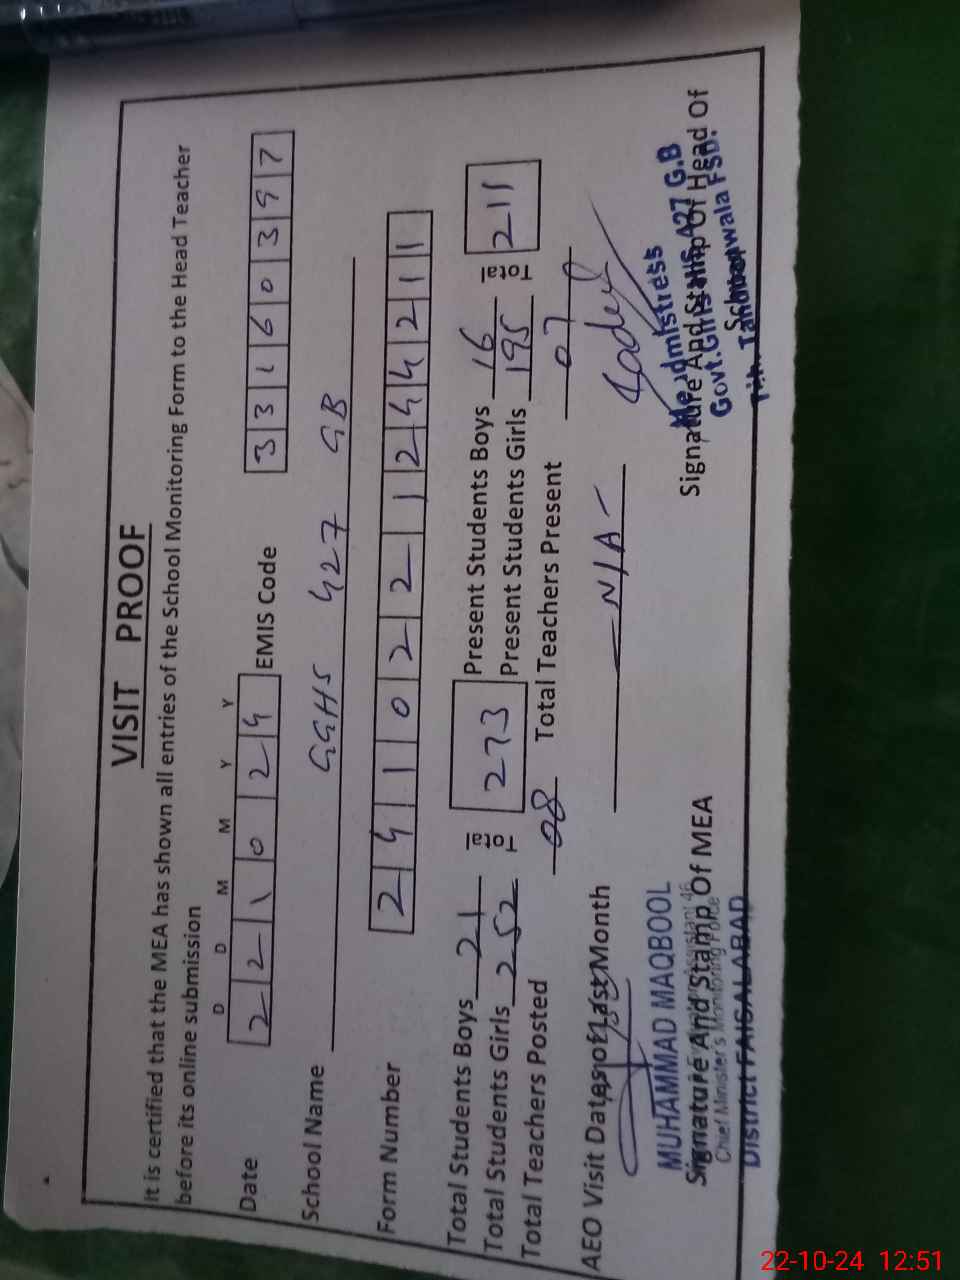 VISIT PROOF
It is certified that the MEA has shown all entries of the School Monitoring Form to the Head Teacher
before its online submission
D D M M Y Y
Date 2 2 1 0 2 4 EMIS Code 3 3 1 6 0 3 9 7
School Name GGHS 427 GB
Form Number 2 4 1 0 2 2 1 2 4 4 2 1 1
Total Students Boys 21 Total 273 Present Students Boys 16 Total 211
Total Students Girls 252 Present Students Girls 195
Total Teachers Posted 08 Total Teachers Present 07
AEO Visit Dates of Last Month N/A
MUHAMMAD MAQBOOL
Signature And Stamp Of MEA
Chief Minister's Monitoring Force
District FAISALABAD
Headmistress
Signature And Stamp Of Head Of
Govt. Girls 427 G.B
School
22-10-24 12:51